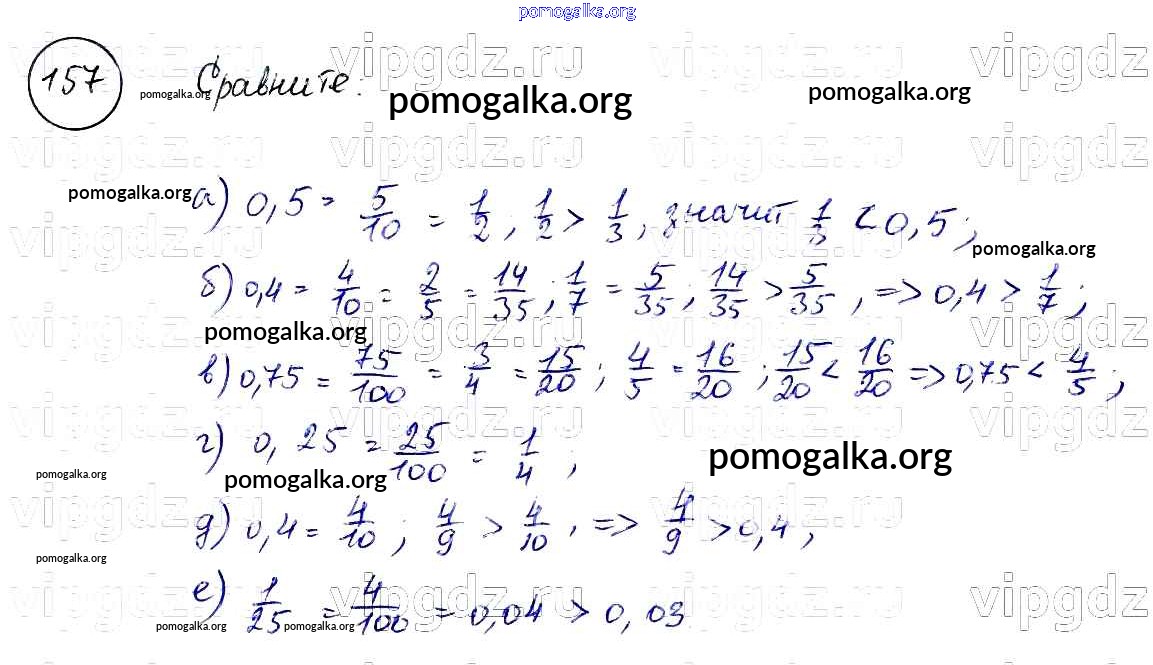 pomogalka.org
vipgdz.ru vipgdz.ru vipgdz
157 Сравните:
pomogalka.org pomogalka.org pomogalka.org
vipgdz.ru vipgdz.ru vipgdz
pomogalka.org
а) 0,5 = 5/10 = 1/2 ; 1/2 > 1/3 , значит 1/3 < 0,5 ;
vipgdz.ru vipgdz.ru vipgdz
pomogalka.org
б) 0,4 = 4/10 = 2/5 = 14/35 ; 1/7 = 5/35 ; 14/35 > 5/35 , => 0,4 > 1/7 ;
pomogalka.org
vipgdz.ru vipgdz.ru vipgdz
в) 0,75 = 75/100 = 3/4 = 15/20 ; 4/5 = 16/20 ; 15/20 < 16/20 => 0,75 < 4/5 ;
vipgdz.ru vipgdz.ru vipgdz
г) 0,25 = 25/100 = 1/4 ;
pomogalka.org pomogalka.org pomogalka.org
vipgdz.ru vipgdz.ru vipgdz
д) 0,4 = 4/10 ; 4/9 > 4/10 , => 4/9 > 0,4 ;
pomogalka.org
vipgdz.ru vipgdz.ru vipgdz
е) 1/25 = 4/100 = 0,04 > 0,03
pomogalka.org pomogalka.org